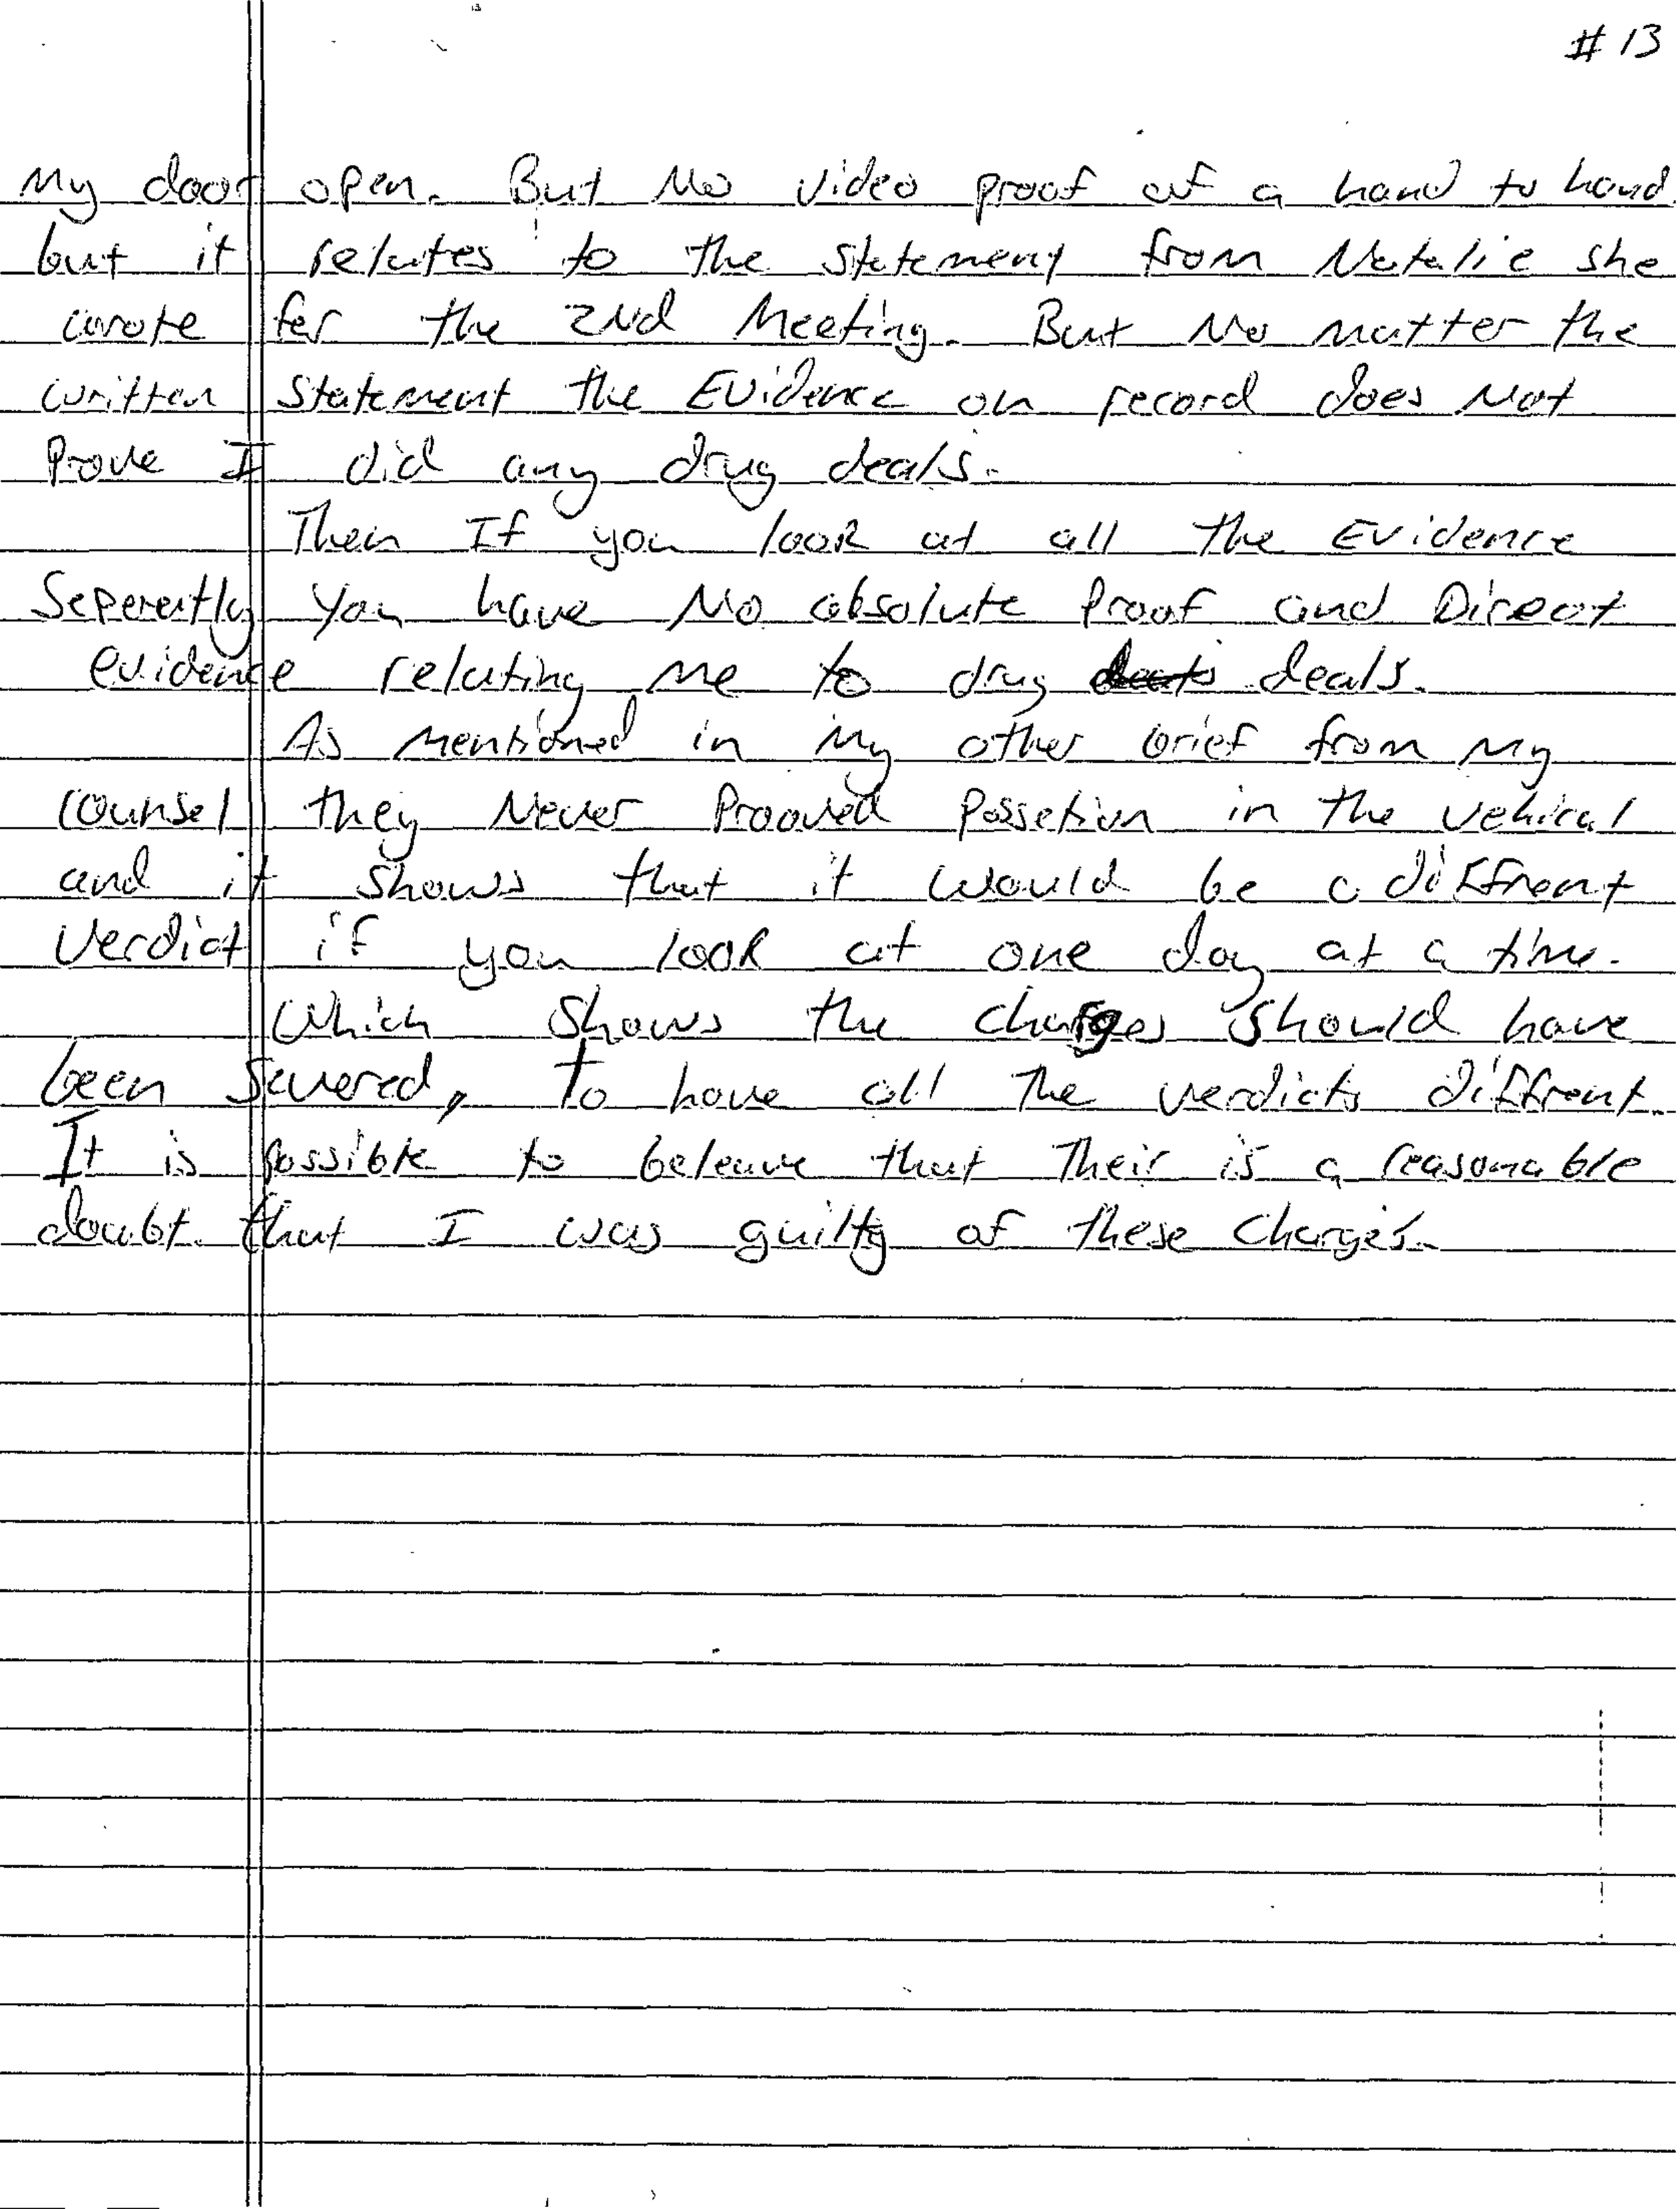 # 13
My door open. But No video proof of a hand to hand.
but it relates to the statement from Natalie she
wrote for the 2Nd Meeting. But No matter the
written Statement the Evidence on record does Not
Prove I did any drug deals.
Then If you look at all the Evidence
Seperertly you have No absolute Proof and Direct
evidence relating me to drug deals.
As mentioned in My other brief from My
counsel they Never Prooved Possetion in the vehical
and it shows that it would be a diffrent
Verdict if you look at one day at a time.
Which Shows the charges Should have
been Severed, To have all the verdicts diffrent.
It is possible to beleave that Their is a reasonable
doubt. that I was guilty of these Charges.